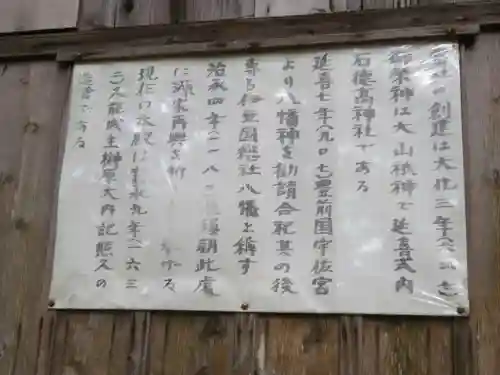 当社の創建は大化三年(六四七)
御祭神は大山祇神で延喜式内
石徳高神社である
延喜七年(九〇七)豊前国宇佐宮
より八幡神を勧請合祀其の後
専ら伊豆国総社八幡と称す
治承四年(一一八〇)源頼朝此處
に源家再興を祈
現在の本殿は寛永九年(一六三
二)久能城主榊原大内記照久の
造营である